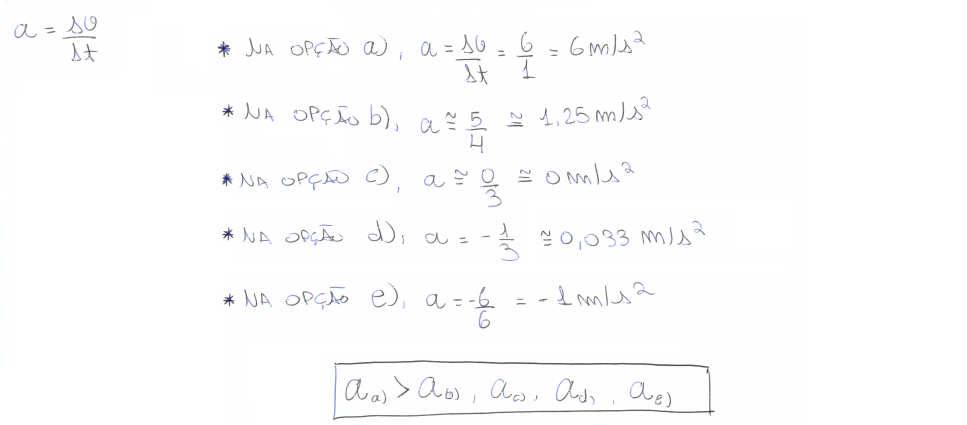 a = Δv/Δt
* NA OPÇÃO a), a = Δv/Δt = 6/1 = 6 m/s²
* NA OPÇÃO b), a ≅ 5/4 ≅ 1,25 m/s²
* NA OPÇÃO c), a ≅ 0/3 ≅ 0 m/s²
* NA OPÇÃO d), a = - 1/3 ≅ 0,033 m/s²
* NA OPÇÃO e), a = -6/6 = - 1 m/s²
a a) > a b), a c), a d), a e)